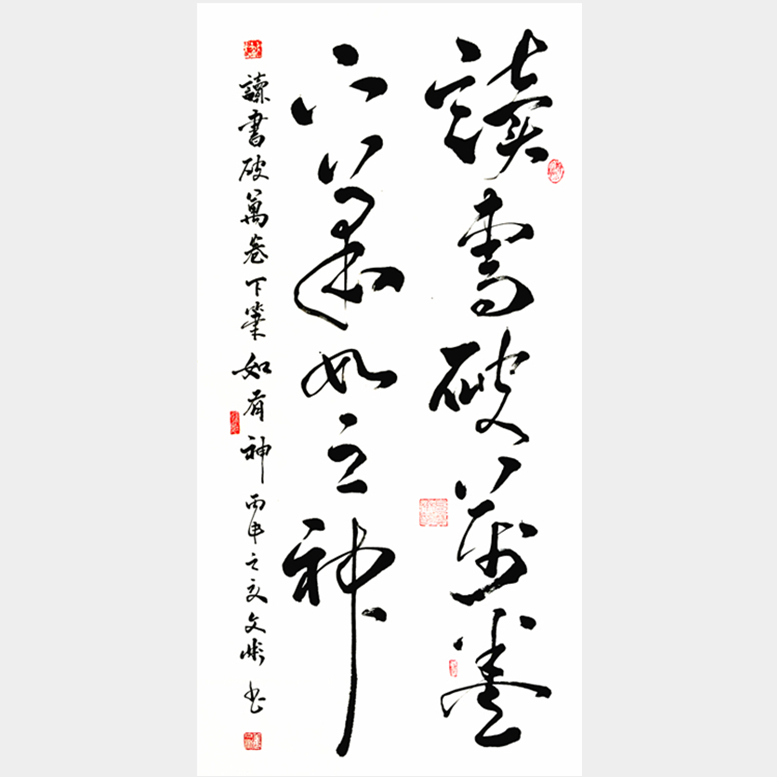 讀書破萬卷
下筆如有神
讀書破萬卷下筆如有神 丙申之夏文彬書